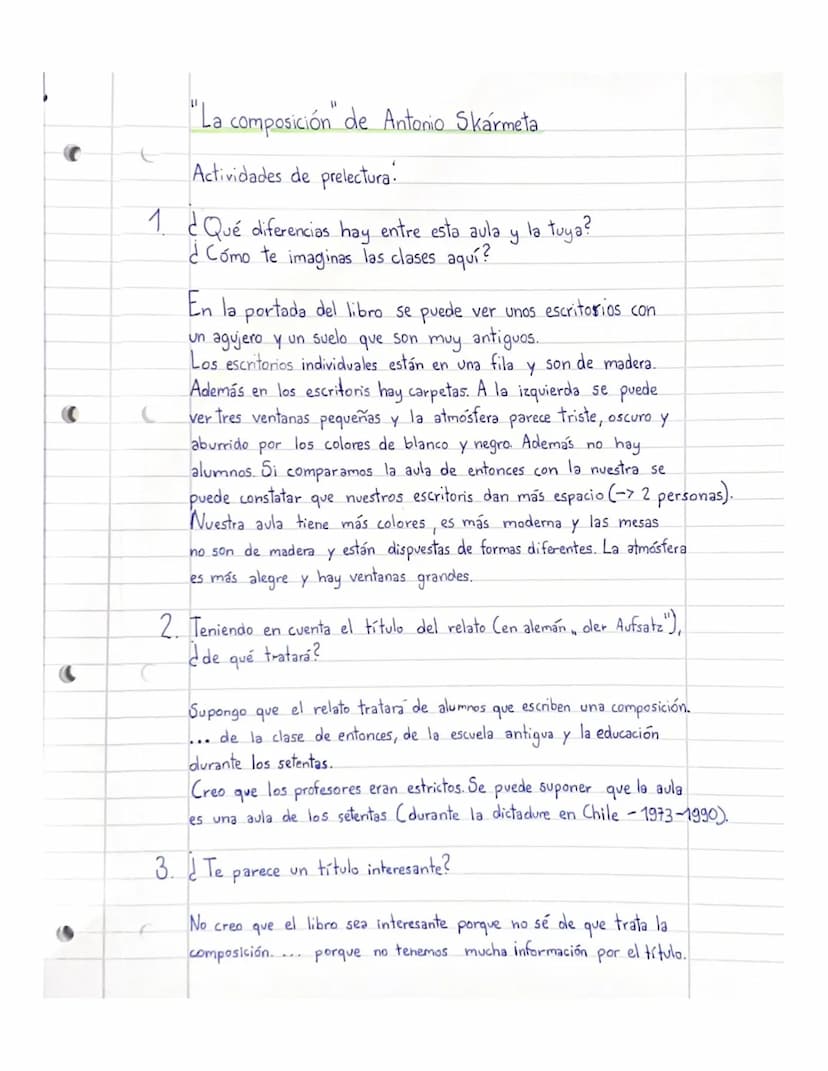 "La composición" de Antonio Skármeta
Actividades de prelectura:
1. ¿Qué diferencias hay entre esta aula y la tuya?
¿Cómo te imaginas las clases aquí?
En la portada del libro se puede ver unos escritorios con
un agujero y un suelo que son muy antiguos.
Los escritorios individuales están en una fila y son de madera.
Además en los escritoris hay carpetas. A la izquierda se puede
ver tres ventanas pequeñas y la atmósfera parece triste, oscuro y
aburrido por los colores de blanco y negro. Además no hay
alumnos. Si comparamos la aula de entonces con la nuestra se
puede constatar que nuestros escritoris dan más espacio (-> 2 personas).
Nuestra aula tiene más colores, es más moderna y las mesas
no son de madera y están dispuestas de formas diferentes. La atmósfera
es más alegre y hay ventanas grandes.
2. Teniendo en cuenta el título del relato (en alemán „der Aufsatz"),
¿de qué tratará?
Supongo que el relato tratará de alumnos que escriben una composición.
... de la clase de entonces, de la escuela antigua y la educación
durante los setentas.
Creo que los profesores eran estrictos. Se puede suponer que la aula
es una aula de los setentas (durante la dictadure en Chile - 1973-1990).
3. ¿Te parece un título interesante?
No creo que el libro sea interesante porque no sé de que trata la
composición. ... porque no tenemos mucha información por el título.